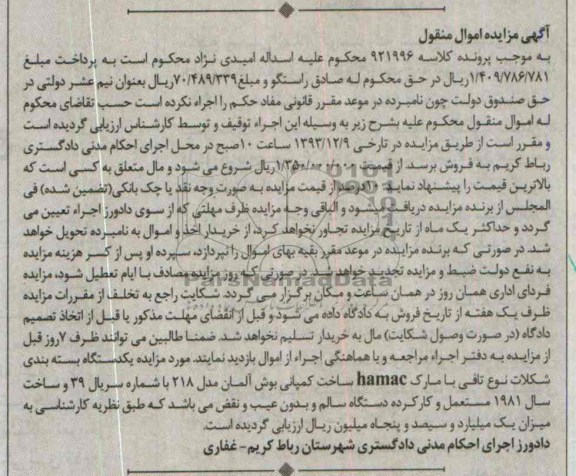 آگهی مزایده اموال منقول
به موجب پرونده کلاسه ۹۲۱۹۹۶ محکوم علیه اسداله امیدی نژاد محکوم است به پرداخت مبلغ
۱/۴۰۹/۷۸۶/۷۸۱ریال در حق محکوم له صادق راستگو و مبلغ۷۰/۴۸۹/۳۳۹ریال بعنوان نیم عشر دولتی در
حق صندوق دولت چون نامبرده در موعد مقرر قانونی مفاد حکم را اجراء نکرده است حسب تقاضای محکوم
له اموال منقول محکوم علیه بشرح زیر به وسیله این اجراء توقیف و توسط کارشناس ارزیابی گردیده است
و مقرر است از طریق مزایده در تارخی ۱۳۹۳/۱۲/۹ ساعت ۱۰صبح در محل اجرای احکام مدنی دادگستری
رباط کریم به فروش برسد از قیمت ۱/۳۵۰/۰۰۰/۰۰۰ریال شروع می شود و مال متعلق به کسی است که
بالاترین قیمت را پیشنهاد نماید ۱۰درصد از قیمت مزایده به صورت وجه نقد یا چک بانکی(تضمین شده) فی
المجلس از برنده مزایده دریافت میشود و الباقی وجه مزایده ظرف مهلتی که از سوی دادورز اجراء تعیین می
گردد و حداکثر یک ماه از تاریخ مزایده تجاوز نخواهد کرد، از خریدار اخذ و اموال به نامبرده تحویل خواهد
شد. در صورتی که برنده مزایده در موعد مقرر بقیه بهای اموال را نپردازد، سپرده او پس از کسر هزینه مزایده
به نفع دولت ضبط و مزایده تجدید خواهد شد. در صورتی که روز مزایده مصادف با ایام تعطیل شود، مزایده
فردای اداری همان روز در همان ساعت و مکان برگزار می گردد. شکایت راجع به تخلف از مقررات مزایده
ظرف یک هفته از تاریخ فروش به دادگاه داده می شود و قبل از انقضای مهلت مذکور یا قبل از اتخاذ تصمیم
دادگاه (در صورت وصول شکایت) مال به خریدار تسلیم نخواهد شد. ضمنا طالبین می توانند ظرف ۷روز قبل
از مزایده به دفتر اجراء مراجعه و با هماهنگی اجراء از اموال بازدید نمایند. مورد مزایده یکدستگاه بسته بندی
شکلات نوع تافی با مارک hamac ساخت کمپانی بوش آلمان مدل ۲۱۸ با شماره سریال ۳۹ و ساخت
سال ۱۹۸۱ مستعمل و کارکرده دستگاه سالم و بدون عیب و نقض می باشد که طبق نظریه کارشناسی به
میزان یک میلیارد و سیصد و پنجاه میلیون ریال ارزیابی گردیده است.
دادورز اجرای احکام مدنی دادگستری شهرستان رباط کریم- غفاری
ParsNamadData